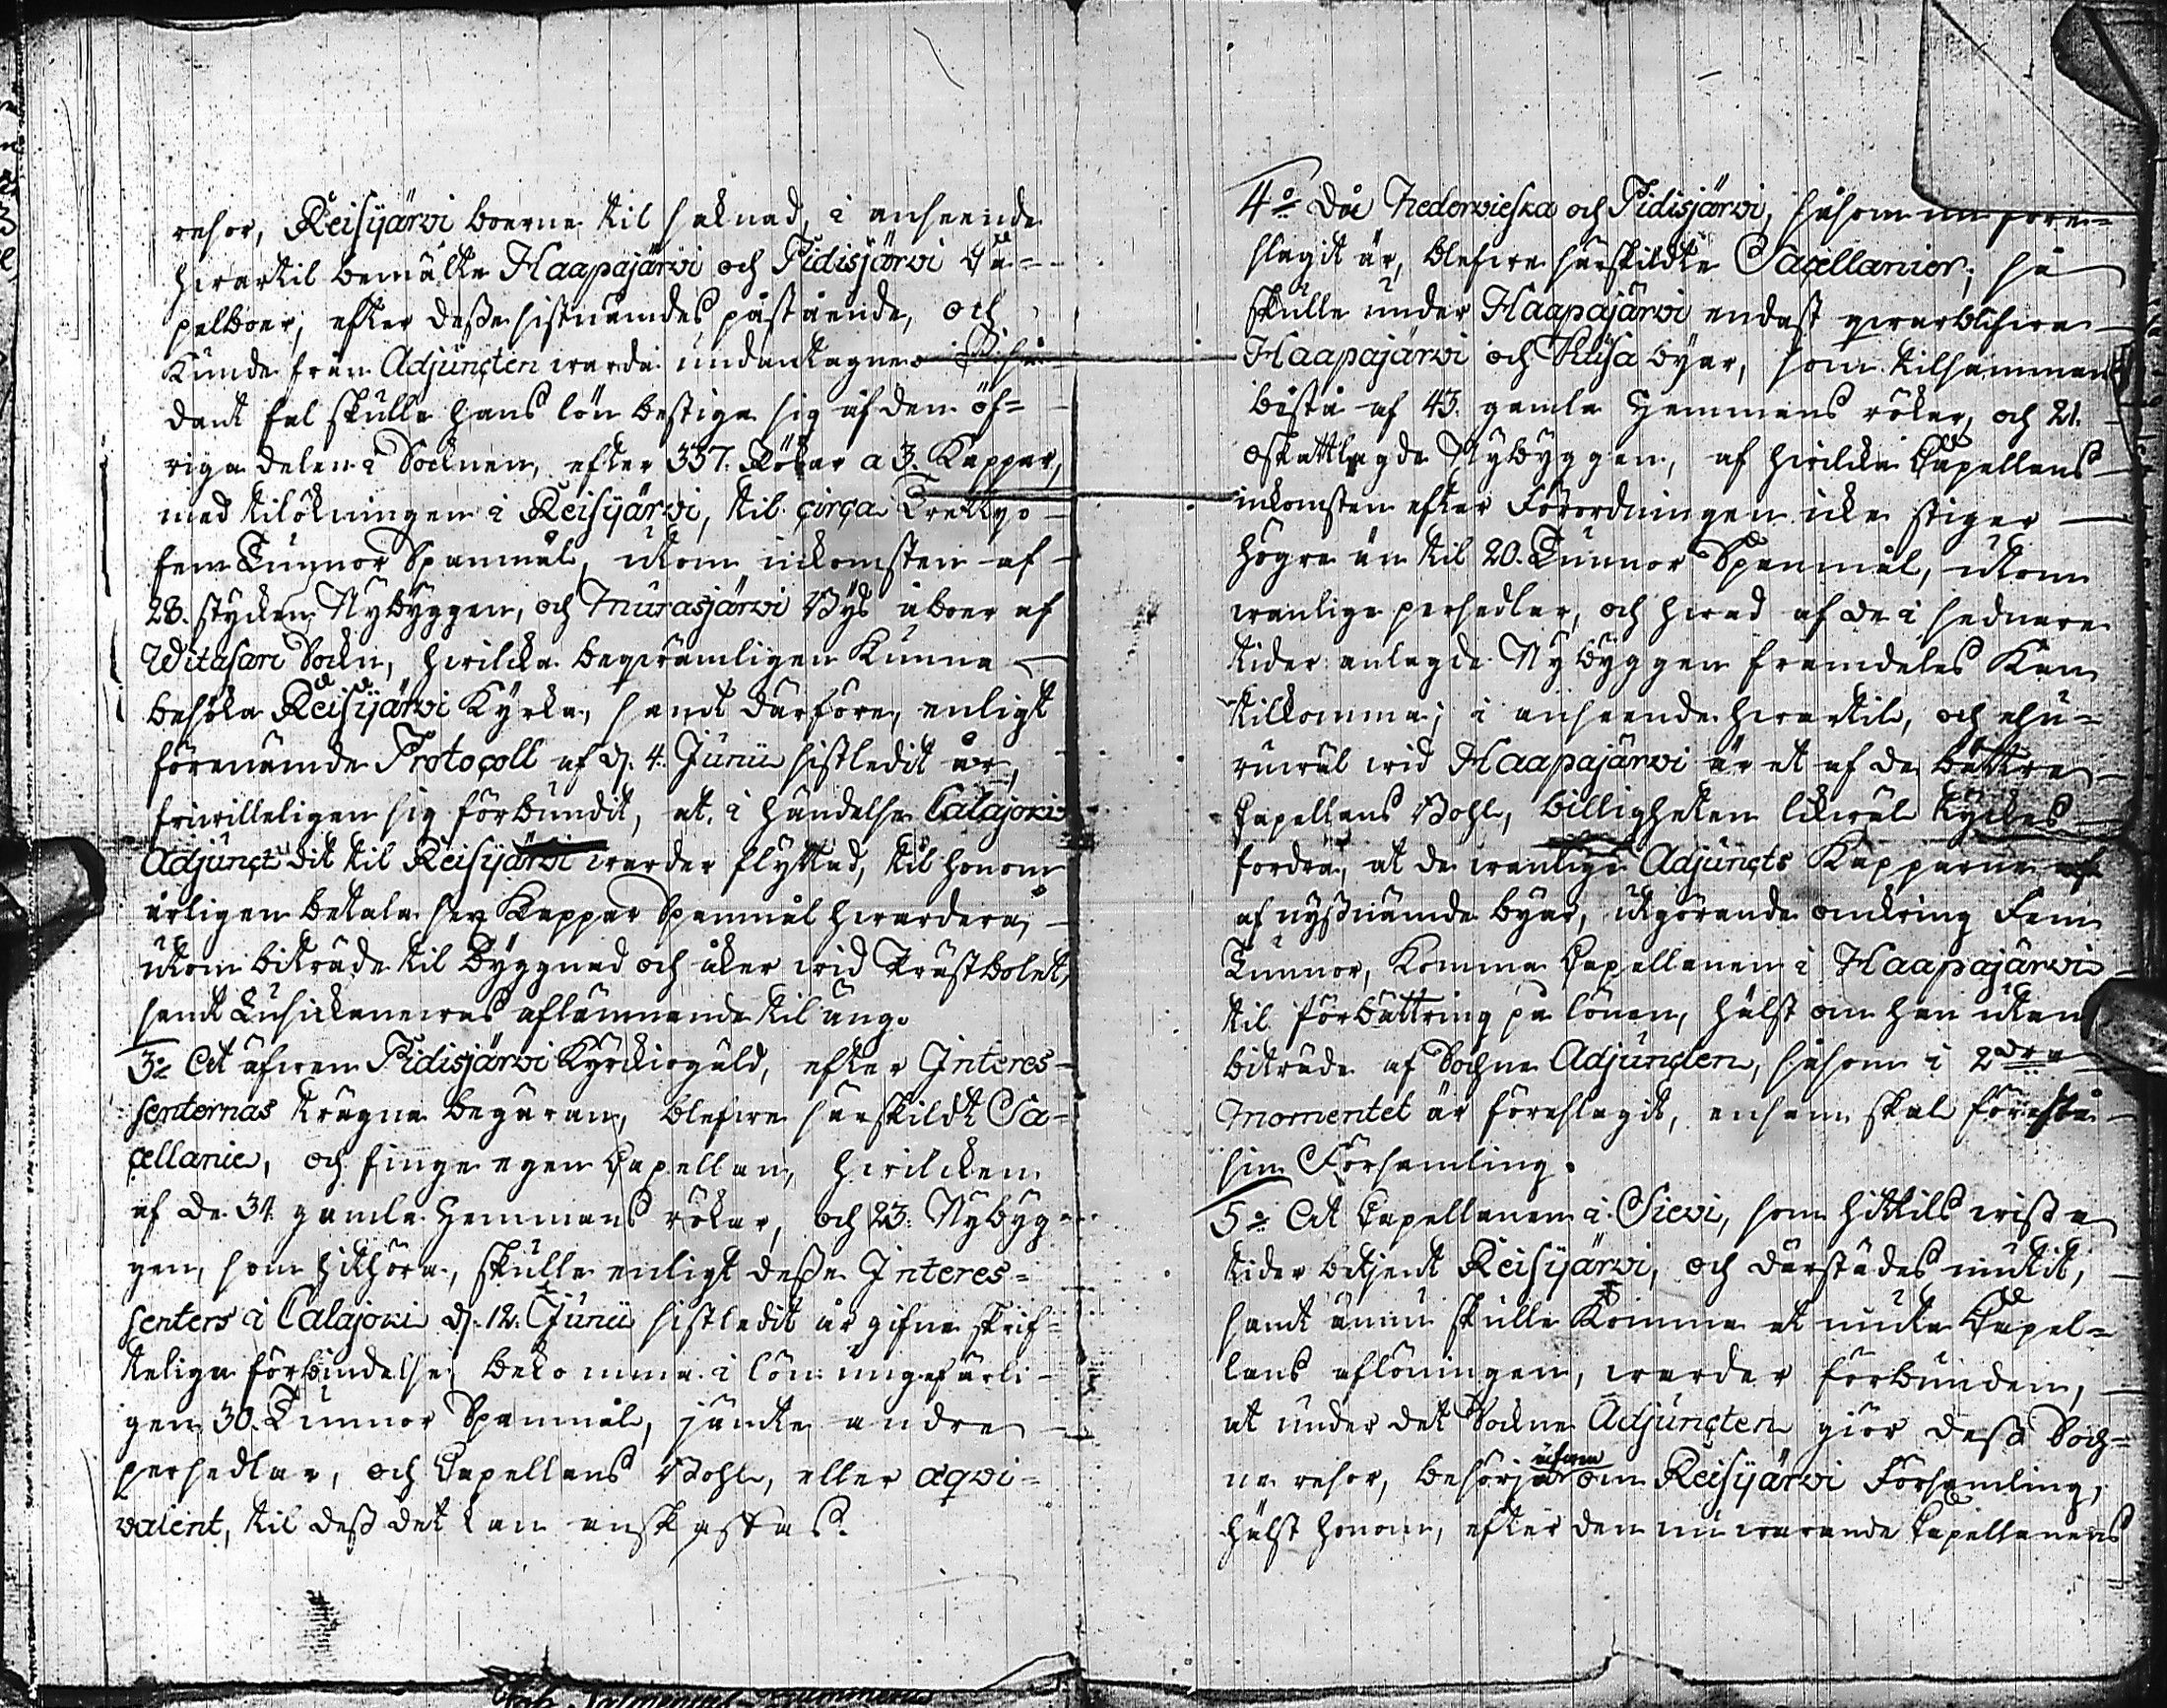 resor, Reisijärvi boerne til saknad, i anseende
hwartil bemälte Haapajärvi och Pidisjärvi Ca-
pelboer, efter desse sistnämdes påstående, och
kunde från Adjuncten warda undantagne. I så-
dant fal skulle hans lön bestiga sig af den öf-
riga delen i Socknen, efter 337. Rökar a 3. Kappar,
med tilökningen i Reisijärvi, til circa Trettyo
fem Tunnor Spanmål, utom inkomsten af
28. stycken Nybyggen, och Murasjärvi Bys åboer af
Witasari Sockn, hwilcka beqwämligen kunna
besöka Reisijärvi Kyrka, samt därföre, enligt
förenämde Protocoll af d. 4. Junii sistledit år,
friwilleligen sig förbundit, at, i händelse Calajoki
Adjunct dit til Reisijärvi warder flyttad, til honom
årligen betala sex Kappar Spanmål hwardera,
utom biträde til byggnad och åker wid Prästbolet,
samt Lusickanewas aflämnande til äng.
3:o At äfwen Pidisjärvi Kyrckiogäld, efter Interes-
senternas trägne begäran, blefwe särskildt Sa-
cellanie, och finge egen Capellan, hwilcken
af de 34 gamla Hemmans rökar, och 23. Nybyg-
gen, som hithöra, skulle enligt desse Interes-
senters i Calajoki d. 12. Junii sistledit år gifne skrif-
teliga förbindelse, bekomma i lön ungefärli-
gen 30. Tunnor Spanmål, jämte andre
persedlar, och Capellans Bohl, eller æqvi-
valent, til dess det kan anskaffas.
4:o Då Nedervieska och Pidisjärvi, såsom nu före-
slagit är, blefwe särskildte Sacellanier; så
skulle under Haapajärvi endast qwarblifwa
Haapajärvi och Kusa byar, som tilsammans
bestå af 43. gamla Hemmans rökar, och 21.
oskattlagde Nybyggen, af hwilcka Capellans
inkomsten efter Förordningen icke stiger
högre än til 20. Tunnor Spanmål, utom
wanlige persedlar, och hwad af de i sednare
tider anlagde Nybyggen framdeles kan
tilkomma; i anseende hwartil, och ehu-
ruwäl wid Haapajärvi är et af de bättre
Capellans Bohl, billigheten likwäl tyckes
fordra, at de wanlige Adjuncts Kapparne
af nyssnämde byar, utgörande omkring Fem
Tunnor, komma Capellanen i Haapajärvi
til förbättring på lönen, hälst om han utan
biträde af Sochne Adjuncten, såsom i 2:dra
Momentet är föreslagit, ensam skal förestå
sin Församling.
5:o At Capellanen i Sievi, som hittils wissa
tider betjent Reisijärvi, och därstädes nutit,
samt ännu skulle komma at niuta Capel-
lans aflöningen, warder förbunden,
at under det Sockne Adjuncten giör dess Soch-
ne resor, besörja äfwen om Reisijärvi Församling,
hälst honom, efter den nu warande Capellanens